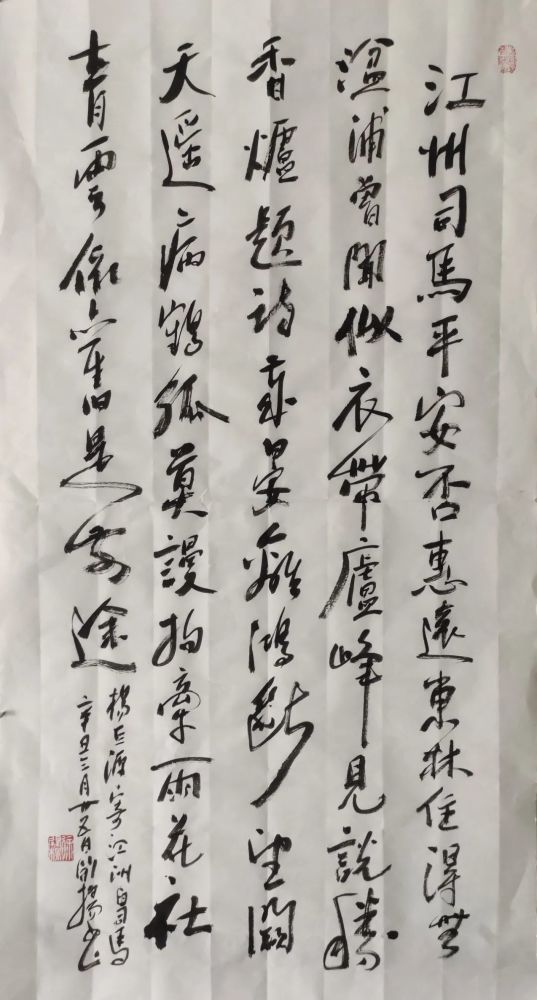 江州司馬平安否惠遠東林住得無
湓浦曾聞似衣帶廬峰見說勝
香爐題詩歲晏離鴻斷望闕
天遥病鶴孤莫謾拘牽雨花社
青雲依舊是前途
楊巨源寄江洲白司馬
辛丑三月廿五日